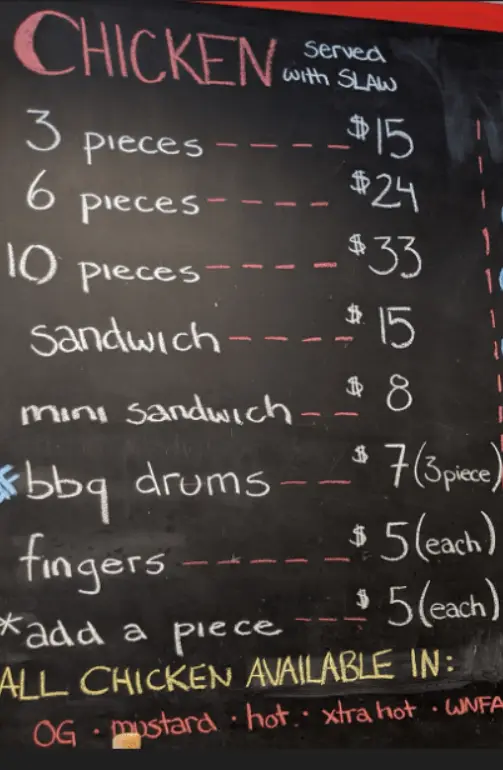 CHICKEN served
with SLAW
3 pieces ---- $15
6 pieces ---- $24
10 pieces ---- $33
sandwich ---- $15
mini sandwich -- $8
bbq drums -- $7 (3 piece)
fingers ----- $5 (each)
*add a piece --- $5 (each)
ALL CHICKEN AVAILABLE IN:
OG · mustard · hot · xtra hot · WNFA